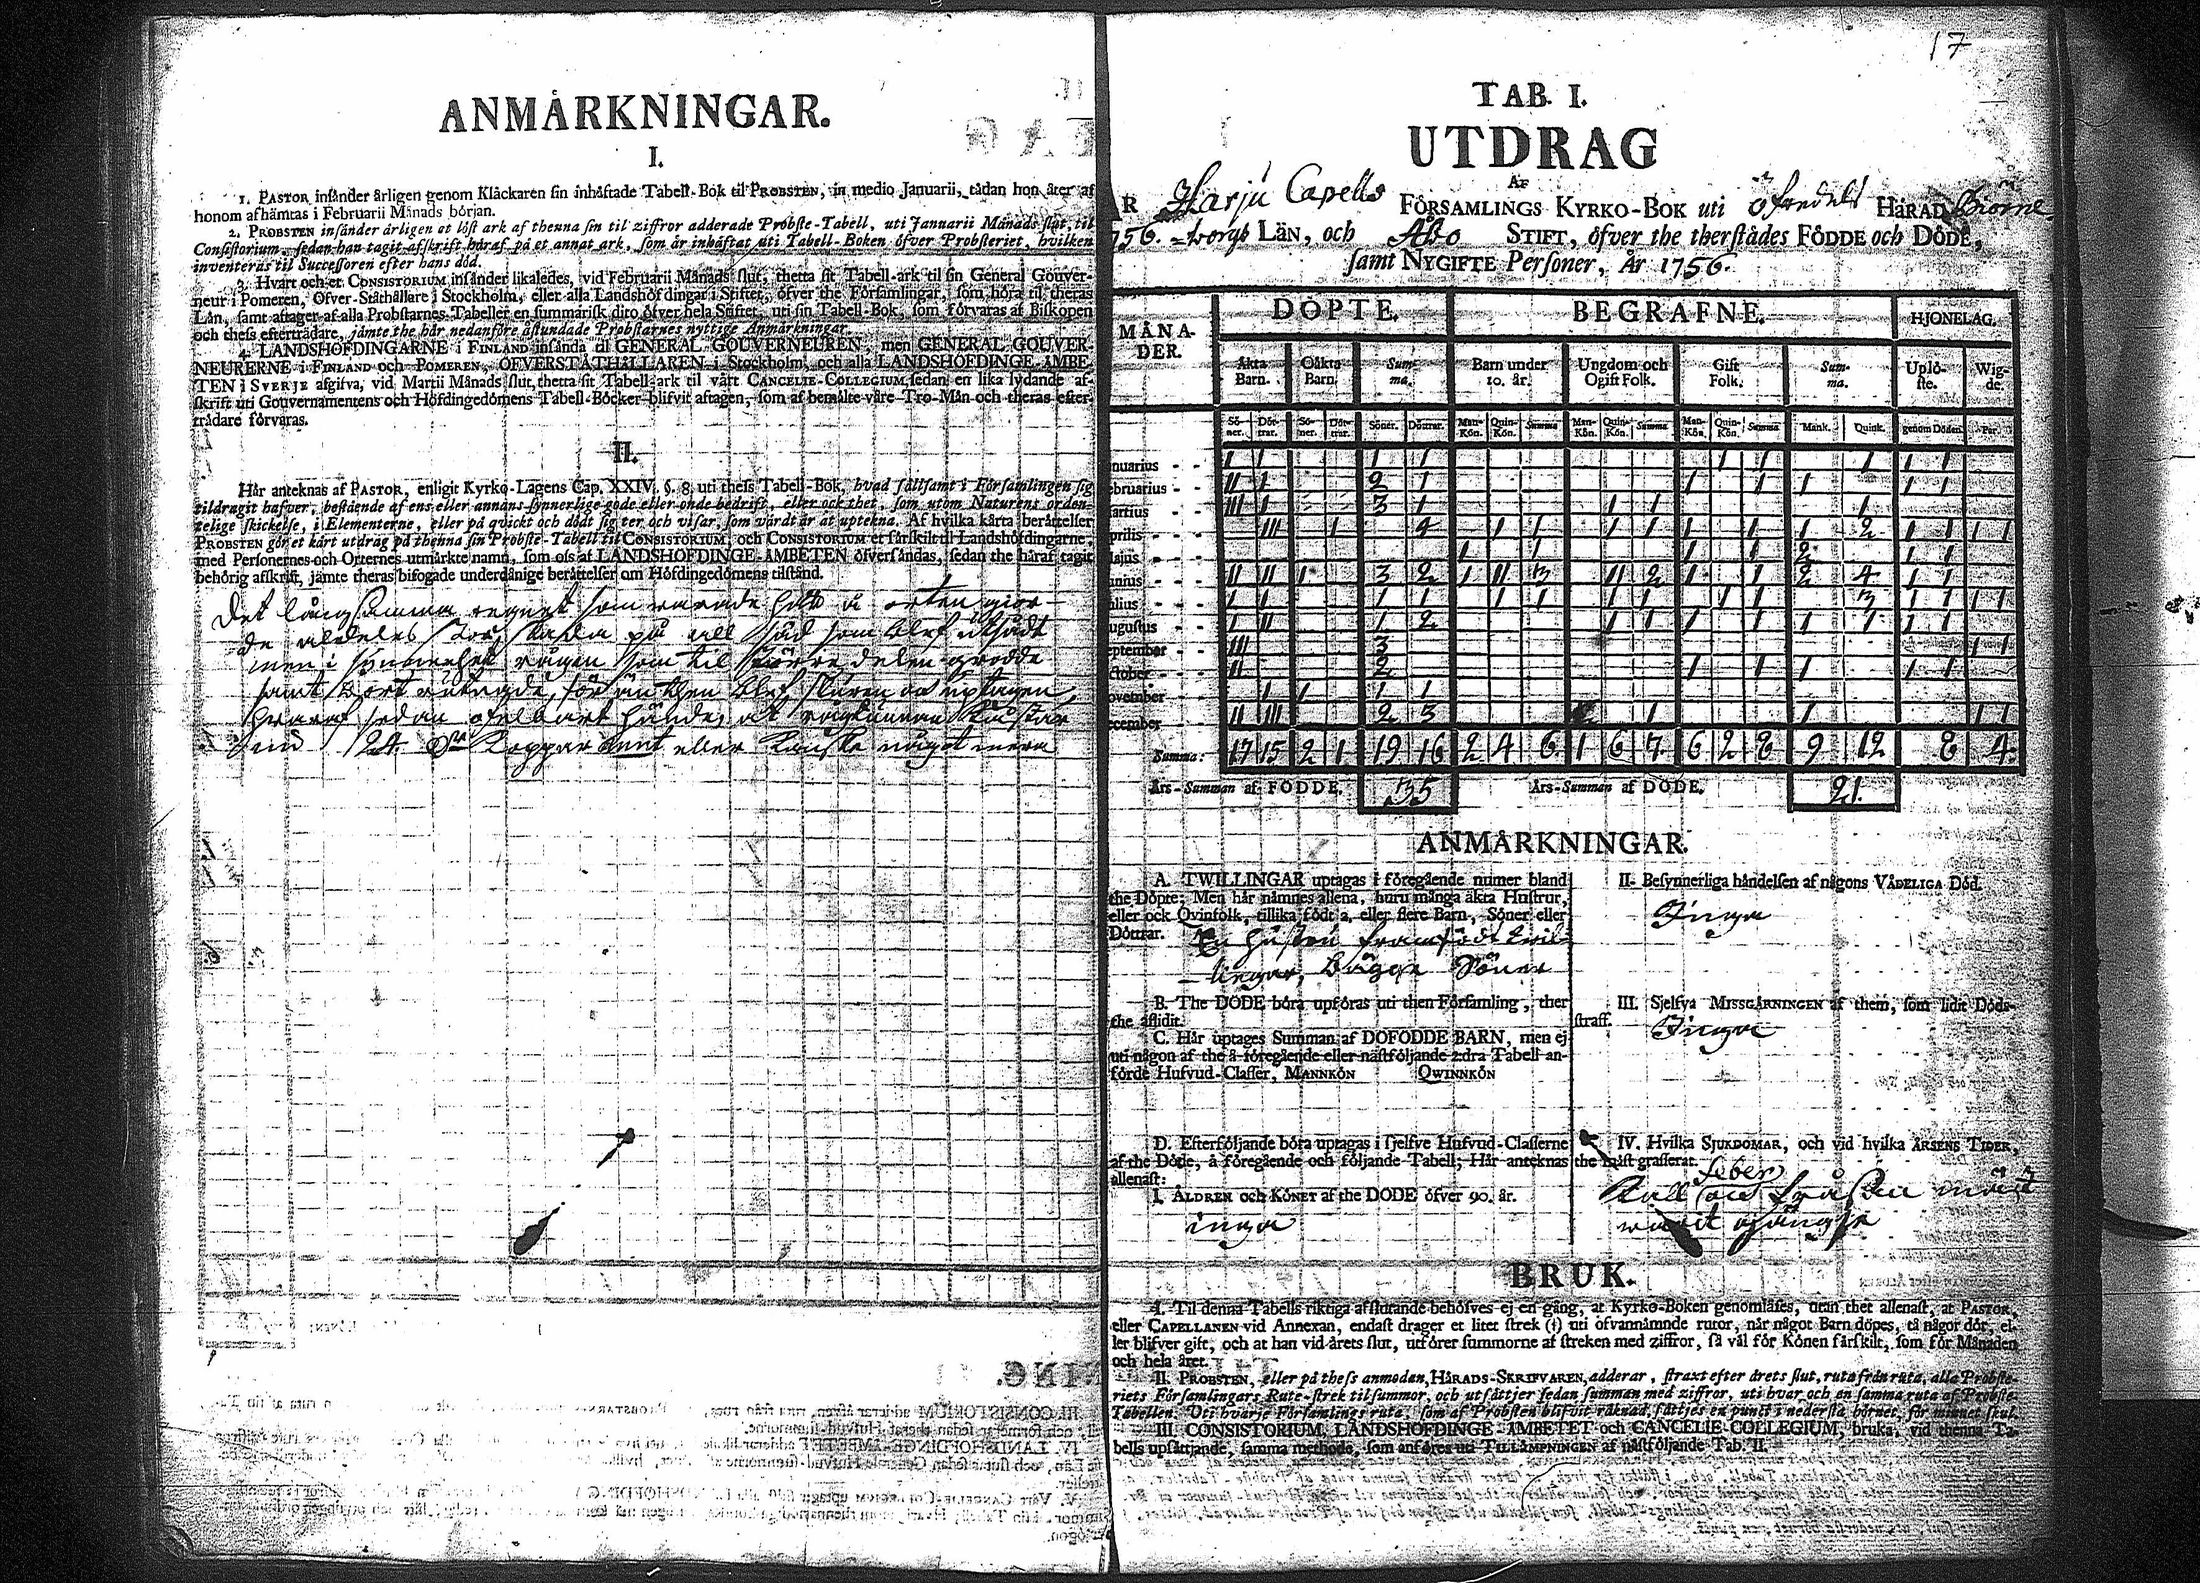 ANMÄRKNINGAR.
I.
1. PASTOR insänder årligen genom Klåckaren sin inhäftade Tabell-Bok til PROBSTEN, in medio Januarii, tådan hon åter af
honom afhämtas i Februarii Månads början.
2. PROBSTEN insänder årligen et löst ark af thenna sin til ziffror adderade Probste-Tabell, uti Januarii Månads slut, til
Consistorium, sedan han tagit afskrift häraf på et annat ark, som är inhäftat uti Tabell-Boken öfver Probsteriet, hvilken
inventeras til Successoren efter hans död.
3. Hvart och et CONSISTORIUM insänder likaledes, vid Februarii Månads slut, thetta sit Tabell-ark til sin General Gouver-
neur i Pomeren, Öfver-Ståthållare i Stockholm, eller alla Landshöfdingar i Stiftet, öfver the Församlingar, som höra til theras
Län, samt aftager af alla Probstarnes Tabeller en summarisk dito öfver hela Stiftet, uti sin Tabell-Bok, som förvaras af Biskopen
och thess efterträdare, jämte the här nedanföre åstundade Probstarnes nyttige Anmärkningar.
4. LANDSHÖFDINGARNE i FINLAND insända til GENERAL GOUVERNEUREN, men GENERAL GOUVER-
NEURERNE i FINLAND och POMEREN, ÖFVERSTÅTHÅLLAREN i Stockholm, och alla LANDSHÖFDINGE-ÄMBE-
TEN i SVERJE afgifva, vid Martii Månads slut, thetta sit Tabell-ark til vårt CANCELIE-COLLEGIUM, sedan en lika lydande af-
skrift uti Gouvernamentens och Höfdingedömens Tabell-Böcker blifvit aftagen, som af bemälte våre Tro-Män och theras efter-
trädare förvaras.
II.
Här anteknas af PASTOR, enligit Kyrko-Lagens Cap. XXIV. §. 8. uti thess Tabell-Bok, hvad sällsamt i Församlingen sig
tildragit hafver, bestående af ens eller annans synnerlige gode eller onde bedrift, eller ock thet, som utom Naturens orden-
telige skickelse, i Elementerne, eller på qvickt och dödt sig ter och visar, som värdt är at uptekna. Af hvilka korta berättelser
PROBSTEN gör et kort utdrag på thenna sin Probste-Tabell til CONSISTORIUM, och CONSISTORIUM et särskilt til Landshöfdingarne,
med Personernes och Orternes utmärkte namn, som oss af LANDSHÖFDINGE-ÄMBETEN öfversändas, sedan the häraf tagit
behörig afskrift, jämte theras bifogade underdånige berättelser om Höfdingedömens tilstånd.
Det långsamma regnet som warade här å orten gior-
de aldeles stor skada på all säd som blef utsådt
men i synnerhet rågen som til större delen grodde
samt bort rutnade, för än then blef skuren och uptagen,
hwaraf sedan
24. Dr Kopparmynt eller kanske något mera
17
TAB. I.
UTDRAG
AF
Harju Capells FÖRSAMLINGS KYRKO-BOK uti öfredels HÄRAD, Biörne-
borgs LÄN, och Åbo STIFT, öfver the therstädes FÖDDE och DÖDE,
samt NYGIFTE Personer, År 1756.
MÅNA-DER. DÖPTE. BEGRAFNE. HJONELAG.
Äkta Barn. Oäkta Barn. Summa. Barn under 10. år. Ungdom och Ogift Folk. Gift Folk. Summa. Uplöste. Wigde.
Söner. Döttrar. Söner. Döttrar. Söner. Döttrar. Man-Kön. Quin-Kön. Summa Man-Kön. Quin-Kön. Summa Man-Kön. Quin-Kön. Summa Mank. Quink. genom Döden. Par.
nuarius I I 1 1 I 1 1 I 1
ebruarius II I 2 1 I 1 1 I 1
artius III I 3 1 I 1
prilis III I 4 I 1 I 1 I 1 1 2 I 1 I 1
ajus I 1 I 1 2 I 1
unius II II I 3 2 I II 3 II 2 I 1 2 4 I 1
ulius I I 1 1 I 1 I 1 I 1 3 I 1 I 1
ugustus I II 1 2 I 1 I 1 1 1 I 1
eptember III 3 I 1
ctober II 2 I 1 1 I 1
ovember I I 1 1
ecember II III 2 3 1 1 I 1
Summa: 17 15 2 1 19 16 2 4 6. 1 6 7. 6 2 8 9 12 8 4.
Års-Summan af FÖDDE, 35 Års-Summan af DÖDE, 21.
ANMÄRKNINGAR.
A. TWILLINGAR uptagas i föregående numer bland
the Döpte; Men här nämnes allena, huru många äkta Hustrur,
eller ock Qvinfolk, tillika födt 2, eller flere Barn, Söner eller
Döttrar. En hustru framfödt twil-
lingar, bägge Söner
B. The DÖDE böra upföras uti then Församling, ther
the aflidit.
C. Här uptages Summan af DÖFÖDDE BARN, men ej
uti någon af the å föregående eller nästföljande 2:dra Tabell an-
förde Hufvud-Classer, MANNKÖN QWINNKÖN
D. Efterföljande böra uptagas i sjelfve Hufvud-Classerne
af the Döde, å föregående och följande Tabell; Här anteknas
allenast:
I. ÅLDREN och KÖNET af the DÖDE öfver 90. år.
inga
II. Besynnerliga händelsen af någons VÅDELIGA Död.
Inga
III. Sjelfva MISSGÄRNINGEN af them, som lidit Döds-
straff. Inga
IV. Hvilka SJUKDOMAR, och vid hvilka ÅRSENS TIDER,
the mäst grasserat. feber
Kall och fråssan mäst
warit gängse
BRUK.
I. Til denna Tabells riktiga afslutande behöfves ej en gång, at Kyrko-Boken genomläses, utan thet allenast, at PASTOR,
eller CAPELLANEN vid Annexan, endast drager et litet strek (I) uti ofvannämnde rutor, når något Barn döpes, tå någor dör, el-
ler blifver gift, och at han vid årets slut, utförer summorne af streken med ziffror, så väl för Könen särskilt, som för Månaden
och hela året.
II. PROBSTEN, eller på thess anmodan, HÄRADS-SKRIFVAREN, adderar, straxt efter årets slut, ruta från ruta, alla Probste-
riets Församlingars Rute-strek til summor, och utsättjer sedan summan med ziffror, uti hvar och en samma ruta af Probste-
Tabellen. Uti hvarje Församlings ruta, som af Probsten blifvit räknad, sättjes en punct i nedersta hörnet, för minnet skul.
III. CONSISTORIUM, LANDSHÖFDINGE-ÄMBETET och CANCELIE-COLLEGIUM, bruka, vid thenna Ta-
bells upsättjande, samma methode, som anföres uti TILLÄMPNINGEN af nästföljande Tab. II.